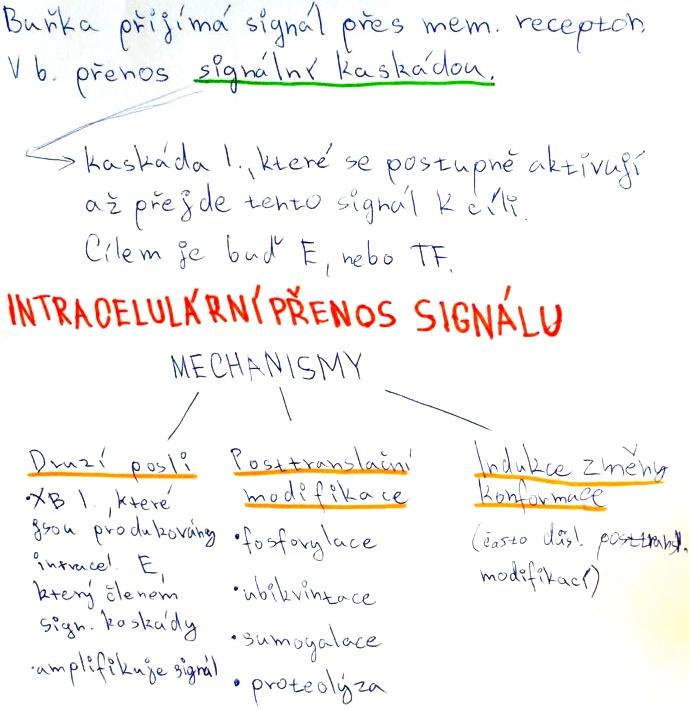 Buňka přijímá signál přes mem. receptor.
V b. přenos signální kaskádou.
kaskáda l., které se postupně aktivují
až přejde tento signál k cíli.
Cílem je buď E, nebo TF.
INTRACELULÁRNÍ PŘENOS SIGNÁLU
MECHANISMY
Druzí posli
•XB l., které
jsou produkovány
intracel. E,
který členem
sign. kaskády
•amplifikuje signál
Posttranslační
modifikace
•fosforylace
•ubikvintace
•sumogalace
•proteolýza
Indukce změny
konformace
(často důsl. posttransl.
modifikací)